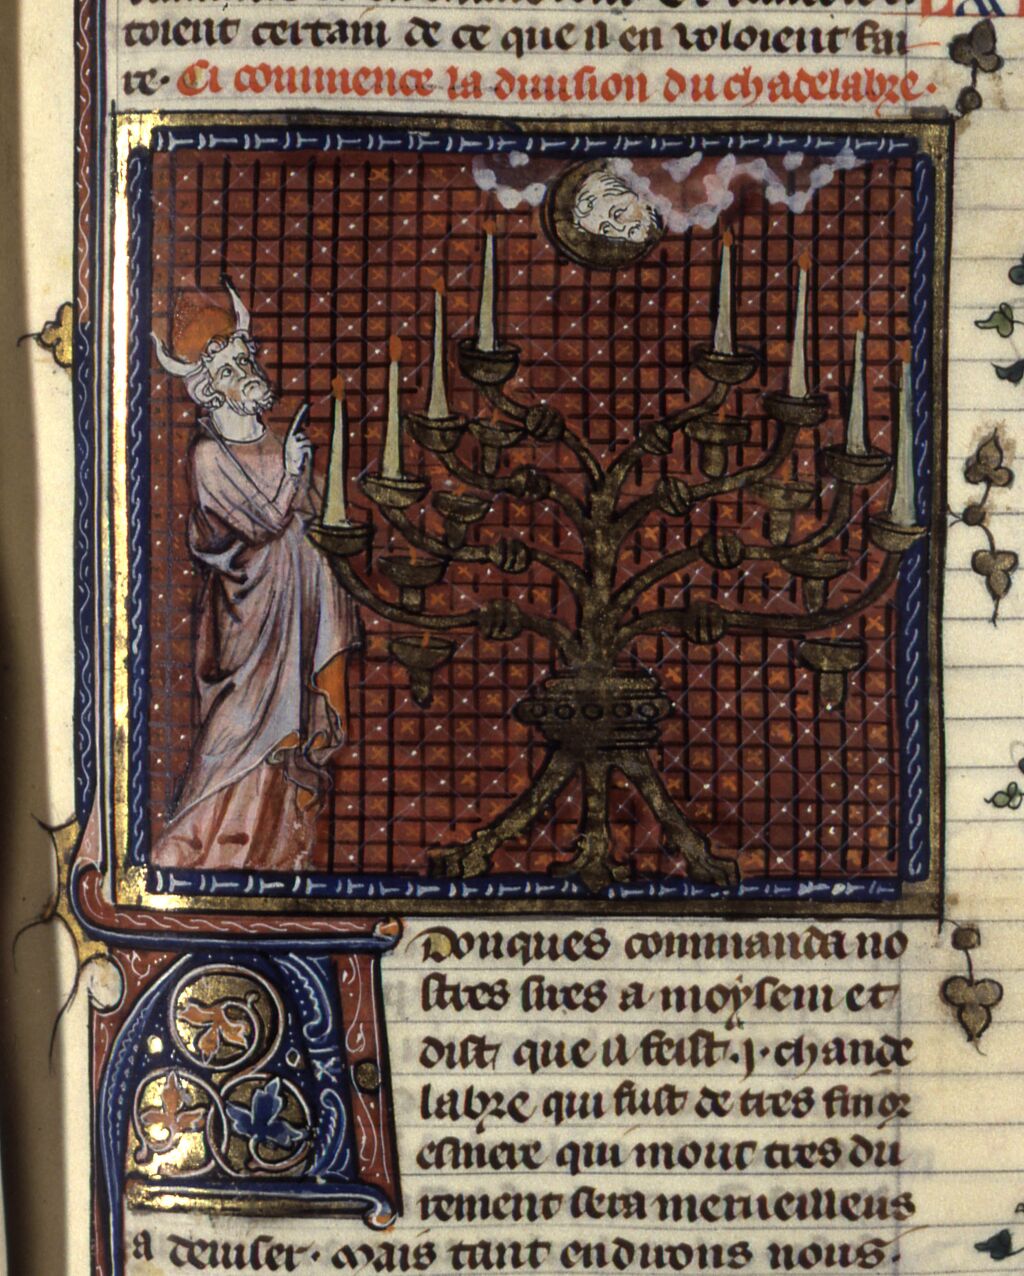 toient certain de ce que il en voloient fai
re. Ci commence la diuision du chadelabre.
Donques commanda no
stres sires a moysem et
dist que il feist .j. chande
labre qui fust de tres fin or
esmere qui mout tres du
rement sera merueilleus
a deuiser. Mais tant en dirons nous.